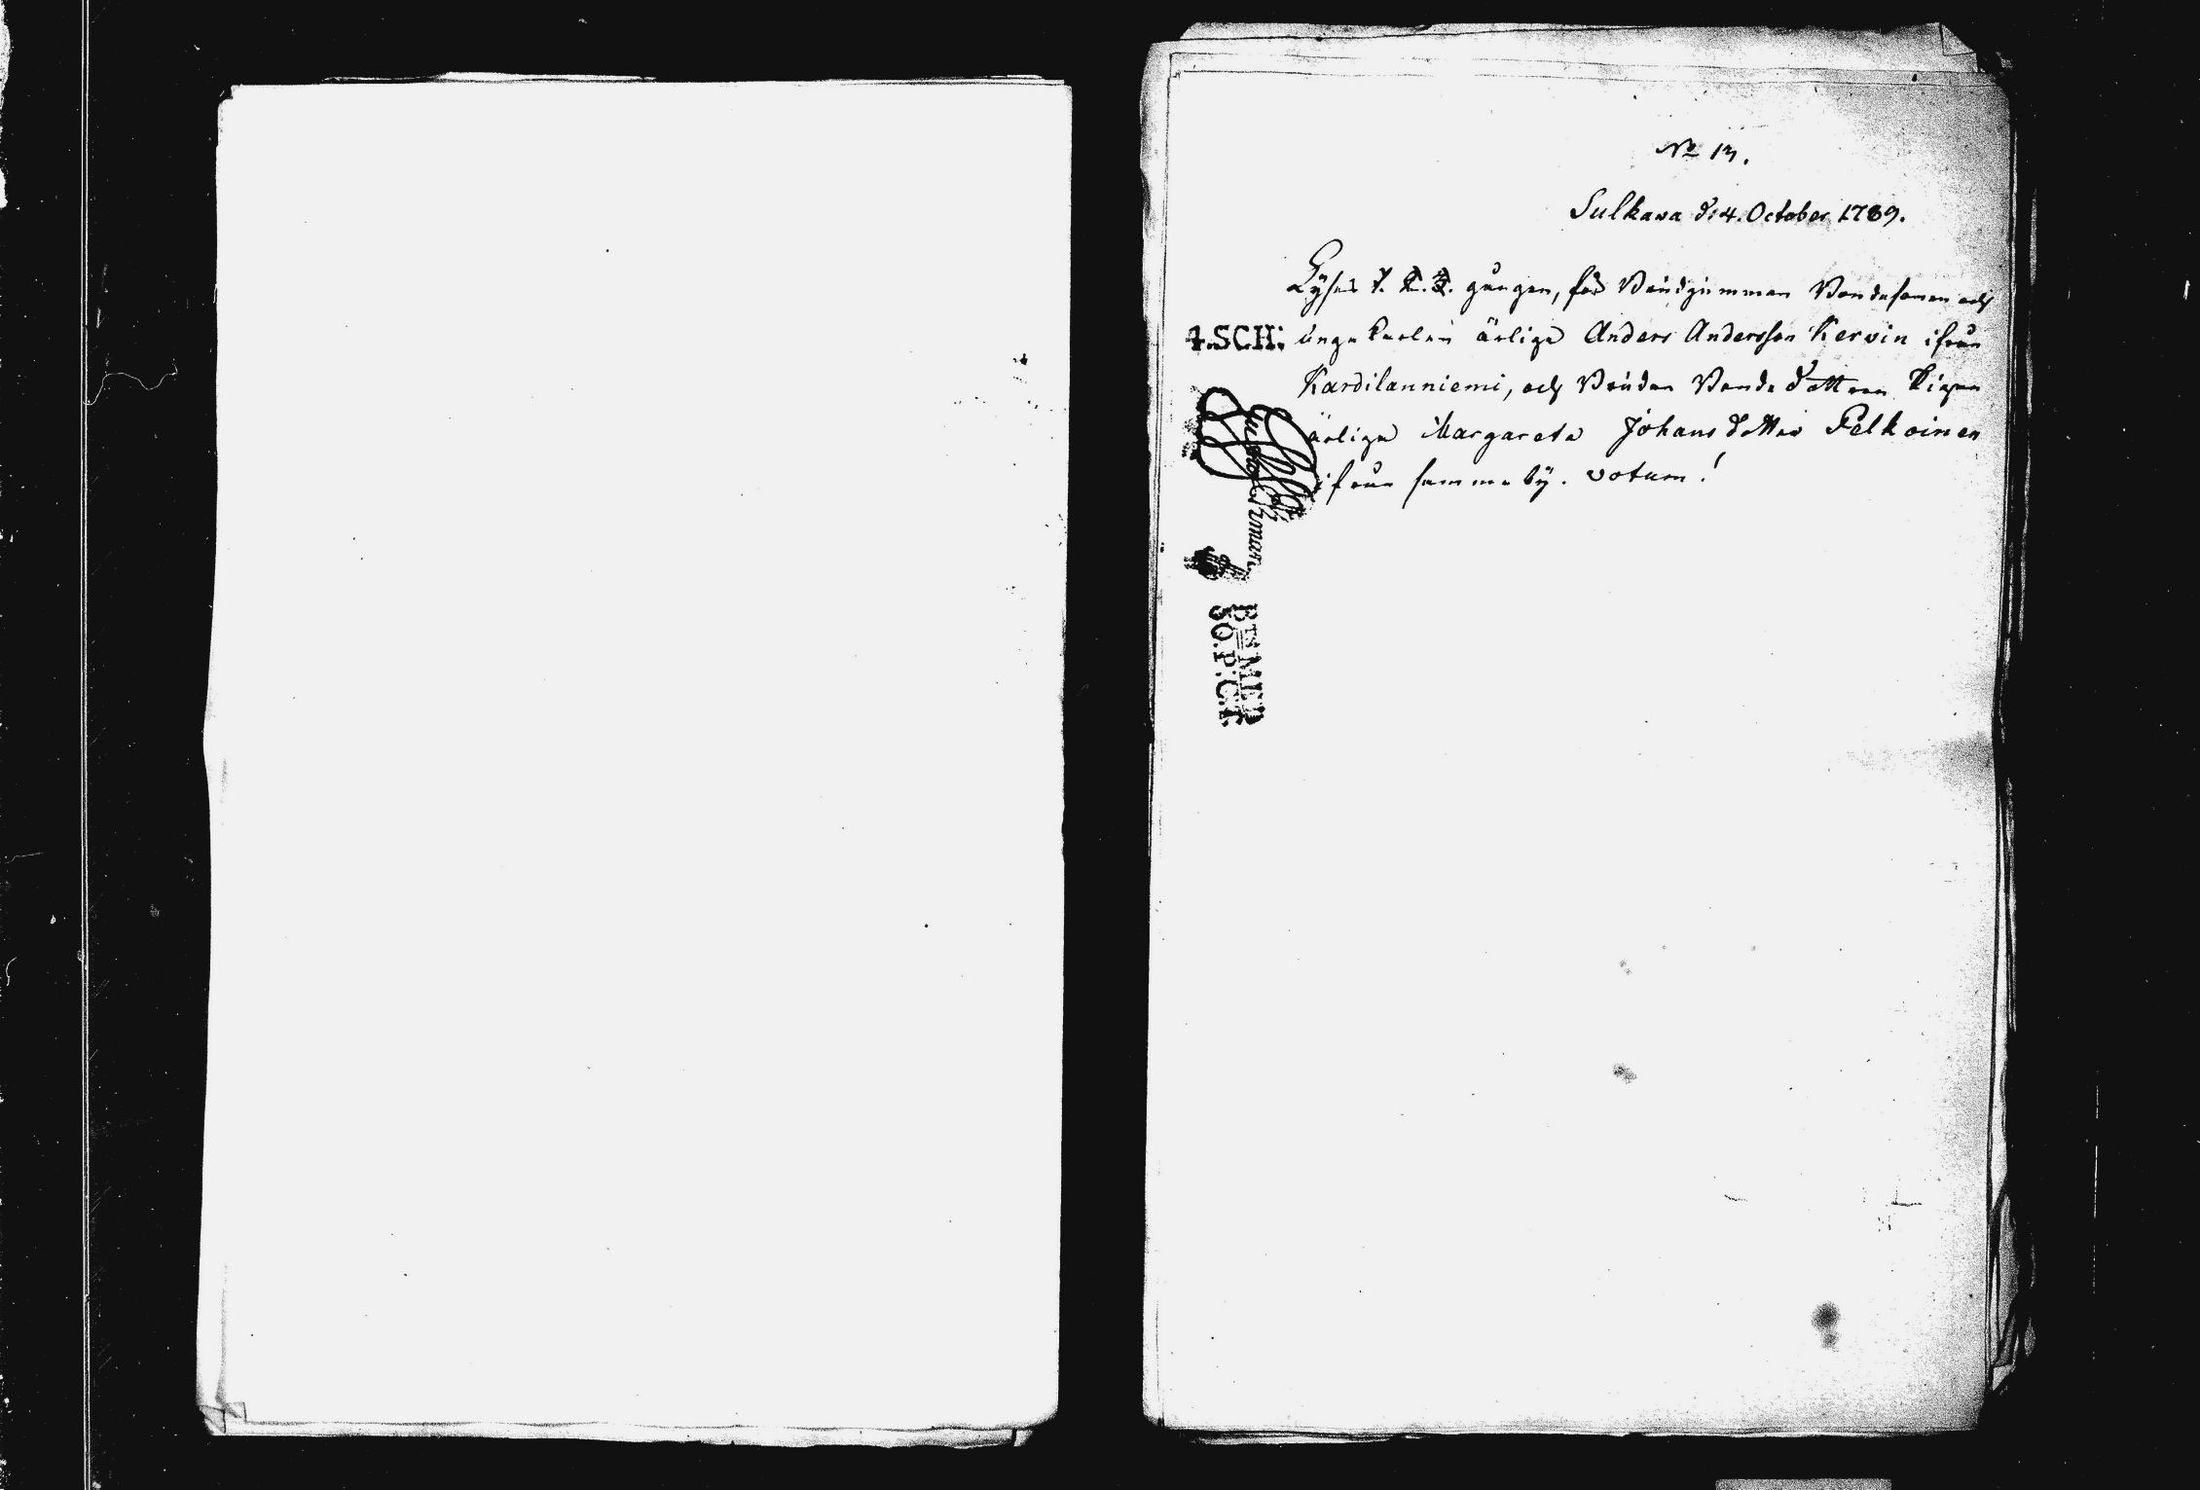 No 13.
Sulkava d: 4. October 1789.
Lyses 1. 2. 3. gången, för Brudgumman Bondesonen och
4.SCH: unge Karlen ärlige Anders Andersson Kervin ifrån
Kardilanniemi, och Bruden Bonde dottren Pigan
ärliga Margareta Johans dotter Pelkoinen
ifrån samma by. votum!
BTS MER
50.P.C.T.